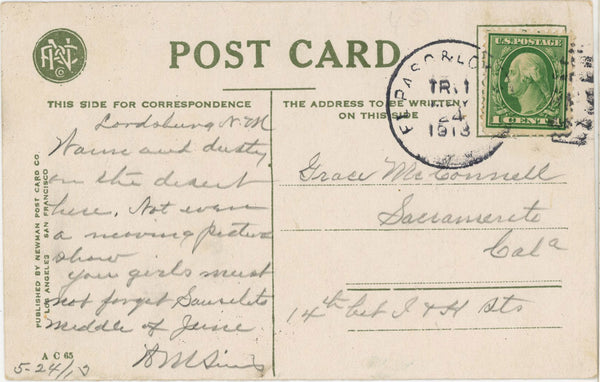 POST CARD
THIS SIDE FOR CORRESPONDENCE
THE ADDRESS TO BE WRITTEN
ON THIS SIDE
Lordsburg N.M
Warm and dusty
on the desert
here. Not even
a moving picture
show
your girls must
not forget Sauselito
Middle of June
5-24/13
Grace McConnell
Sacramento
Cala
14th bet I & H Sts
EL PASO & LO
TR. 1
24
1913
U.S. POSTAGE
1 CENT 1
PUBLISHED BY NEWMAN POST CARD CO.
LOS ANGELES SAN FRANCISCO
A C 65